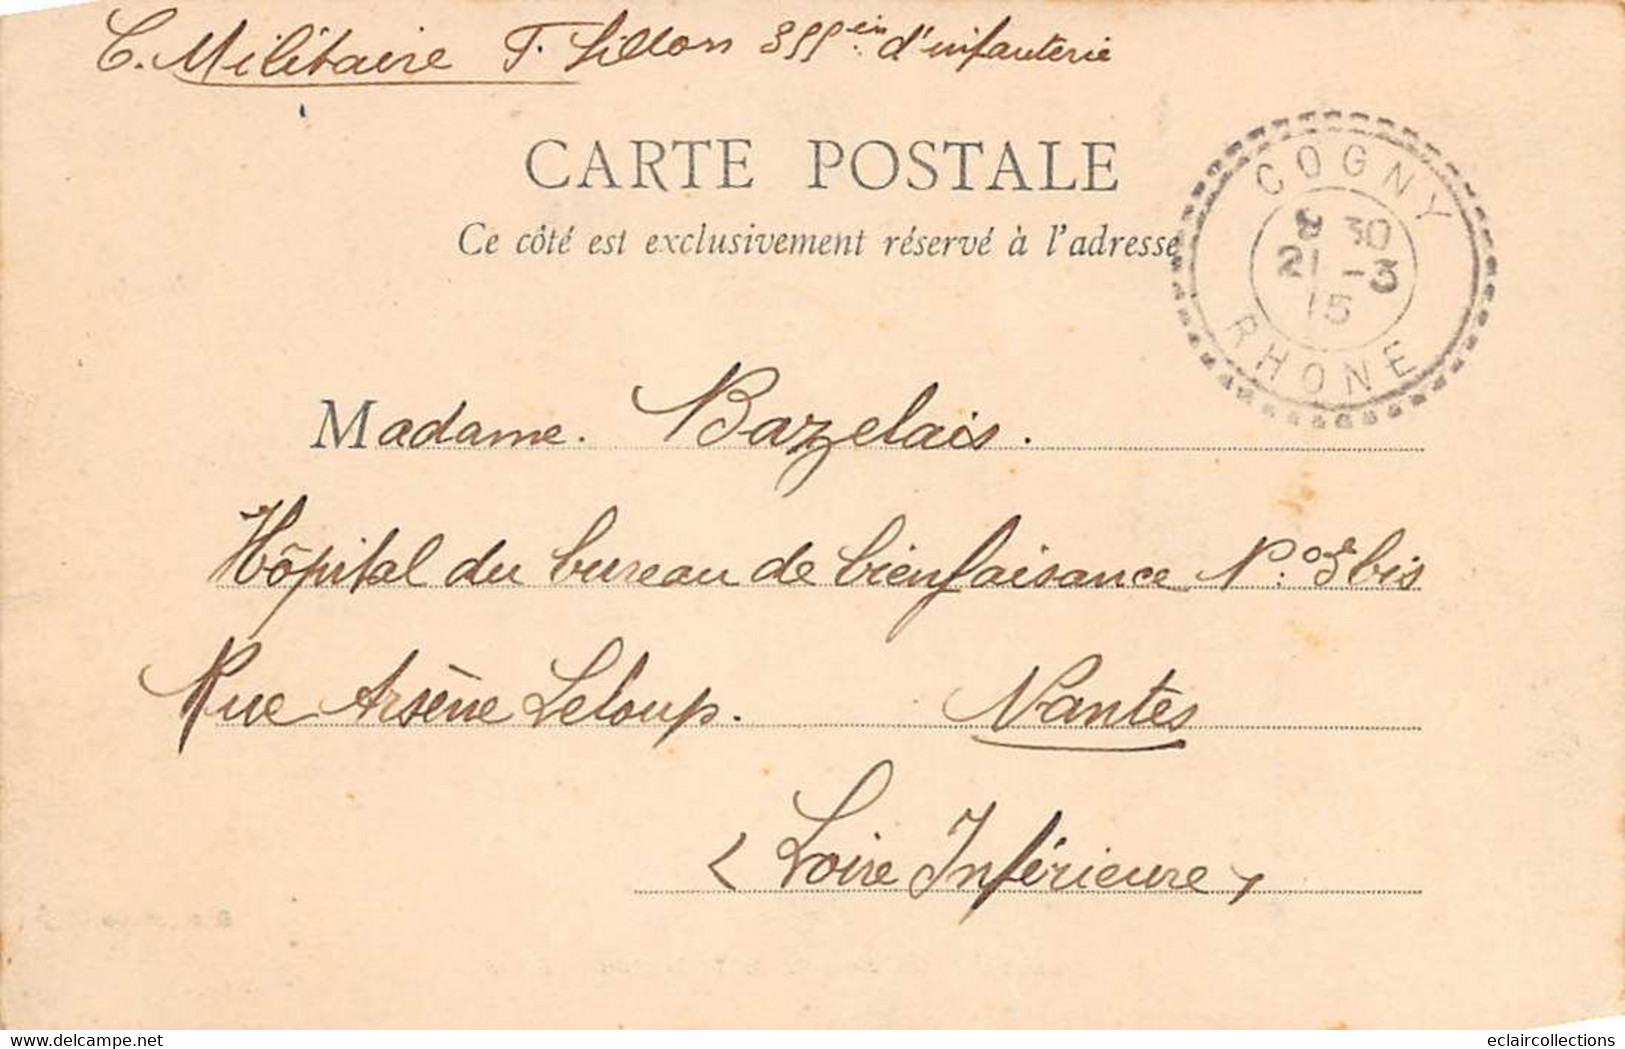 C. Militaire F. Sillon 355ein d'infanterie
CARTE POSTALE
Ce côté est exclusivement réservé à l'adresse
COGNY
8 30
21 -3
15
RHONE
Madame. Bazelais.
Hôpital du bureau de bienfaisance N.º 3 bis
Rue Arsène Leloup. Nantes
(Loire Inférieure)
eclaircollections
delcampe.net